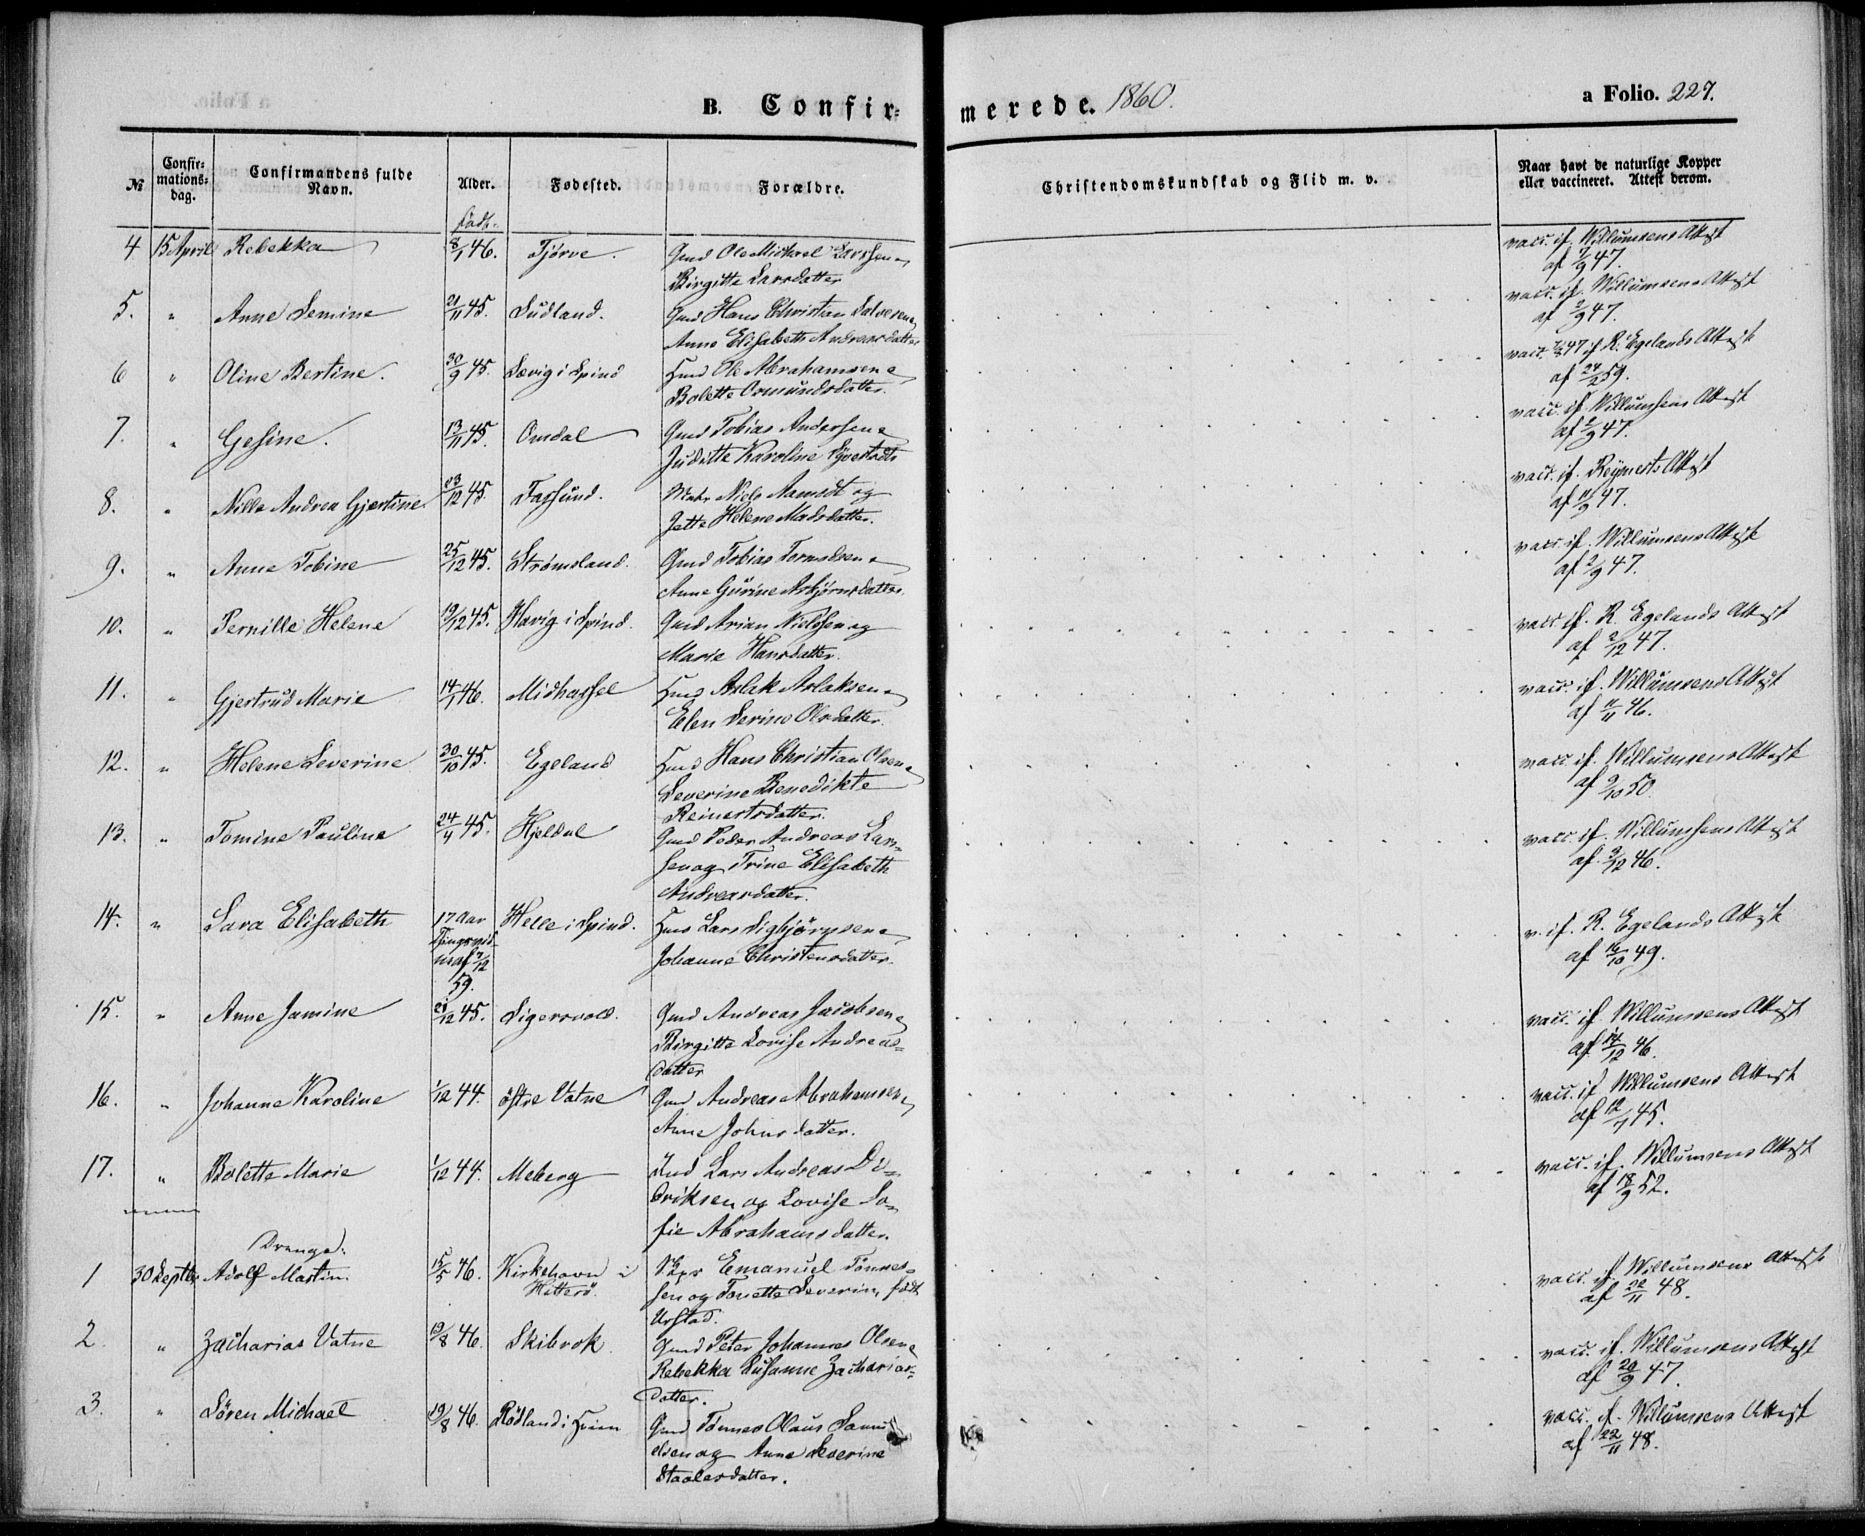 B. Confir- merede. 1860. a Folio. 227.
№ Confir-mations-dag. Confirmandens fulde Navn. Alder. Fødested. Forældre. Christendomskundskab og Flid m. v. Naar havt de naturlige Kopper eller vaccineret. Attest derom.
født
4 15 April Rebekka 8/1 46. Tjørve. Gmd Ole Michael Larssen, vacc. if. Willumsens Attest
Birgitte Larsdatter af 2/9 47.
5. " Anne Semine 21/11 45. Sudland. Gmd Hans Christian Salvesen, vacc. if. Willumsens Attest
Anne Elisabeth Andreasdatter af 2/9 47.
6 " Oline Bertine. 30/9 45. Lævig i Spind Huus Ole Abrahamsen, vacc. 47 if R. Egelands Attest
Bolette Osmundsdatter. af 24/2 59.
7. " Gesine. 13/11 45. Omdal Gmd Tobias Andersen, vacc. if Willumsens Attest
Juditte Karoline af 2/9 47.
8. " Nille Andrea Gjertine 23/12 45. Farsund. Niels Aamodt og vacc. if. Reymerts Attest
Jette Helene Madsdatter. af 11/9 47.
9. " Anne Tobine 25/12 45. Strømsland. Gmd Tobias vacc. if. Willumsens Attest
Anne Gurine Asbjørnsdatter af 2/9 47.
10. " Pernille Helene 19/12 45. i Spind. Gmd Arian Nielssen og vacc. if. R. Egelands Attest
Marie Hansdatter. af 2/12 47.
11. " Gjertrud Marie 14/1 46. Midhassel Huus Aslak Aslaksen, vacc. if. Willumsens Attest
Elen Serine Olsdatter. af 11/11 46.
12. " Helene Severine 30/10 45. Egeland Huus Hans Christian Olsen, vacc. if. Willumsens Attest
Severine Benedikte af 9/10 50.
Reinertsdatter.
13. " Tomine Pauline 24/4 45. Hjeldal Gmd Peder Andreas Lar- vacc. if. Willumsens Attest
sen og Trine Elisabeth af 9/12 46.
Andreasdatter.
14. " Sara Elisabeth 17 Aar Helle i Spind. Huus Lars Sigbjørnsen, v. if. R. Egelands Attest
af 7/12 Johanne Christensdatter. af 16/10 49.
59.
15. " Anne Jamine 21/12 45. Sigersvold. Gmd Andreas Jacobsen, vacc. if. Willumsens Attest
Birgitte Lovise Andreas- af 14/12 46.
datter
16. " Johanne Karoline 1/12 44. østre Vatne Gmd Andreas Abrahamsen, vacc. if. Willumsens Attest
Anne Johnsdatter. af 12/7 45.
17. " Bolette Marie 1/12 44. Meberg Ind Lars Andreas Di- vacc. if. Willumsens Attest
driksen og Lovise So- af 18/9 52.
fie Abrahamsdatter.
Drenge.
1 30 Septbr Adolf Martin. 15/5 46. Kirkehavn i Emanuel Tønnes- vacc. if Willumsens Attest
Hitterö. sen og Tonette Severin, født af 22/11 48.
Urstad.
2. " Zacharias Vatne 19/8 46. Skibvok Gmd Peter Johannes Olsen, vacc. if. Willumsens Attest
Rebekka Susanne Zacharias- af 20/9 47.
datter.
3. " Sören Michael 19/8 46. Rödland i Gmd Tønnes Olaus Samu vacc. if. Willumsens Attest
elsen og Anne Severine af 22/11 48.
Staalesdatter.